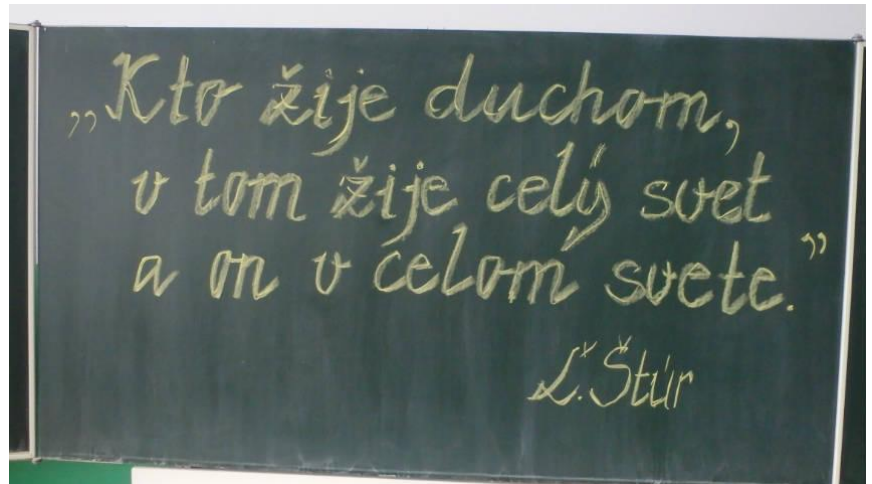 „Kto žije duchom,
v tom žije celý svet
a on v celom svete.”
Ľ. Štúr